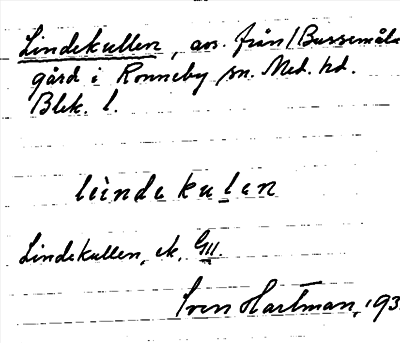 Lindekullen, avs. från Bussemåla
gård i Ronneby sn. Med. hd.
Blek. l.
lìndekulen
Lindekullen, ek. GIII.
Sven Hartman, 193